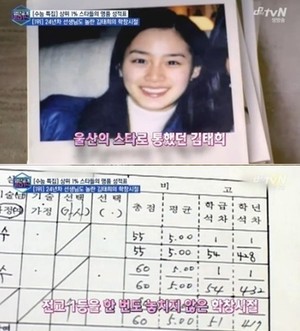 tvN
[수능 특집] 상위 1% 스타들의 명품 성적표
[1위] 24년차 선생님도 놀란 김태희의 학창시절
울산의 스타로 통했던 김태희
tvN
[수능 특집] 상위 1% 스타들의 명품 성적표
[1위] 24년차 선생님도 놀란 김태희의 학창시절
비 고
기술 선택 선택 총점 평균 학급 학년
가정 (가사) ( · ) 석차 석차
수 55 5.00 1 1
55 5.00 54 428
수 60 5.00 1 1
60 5.00 54 432
전교 1등을 한 번도 놓치지 않은 학창시절
60 5.00